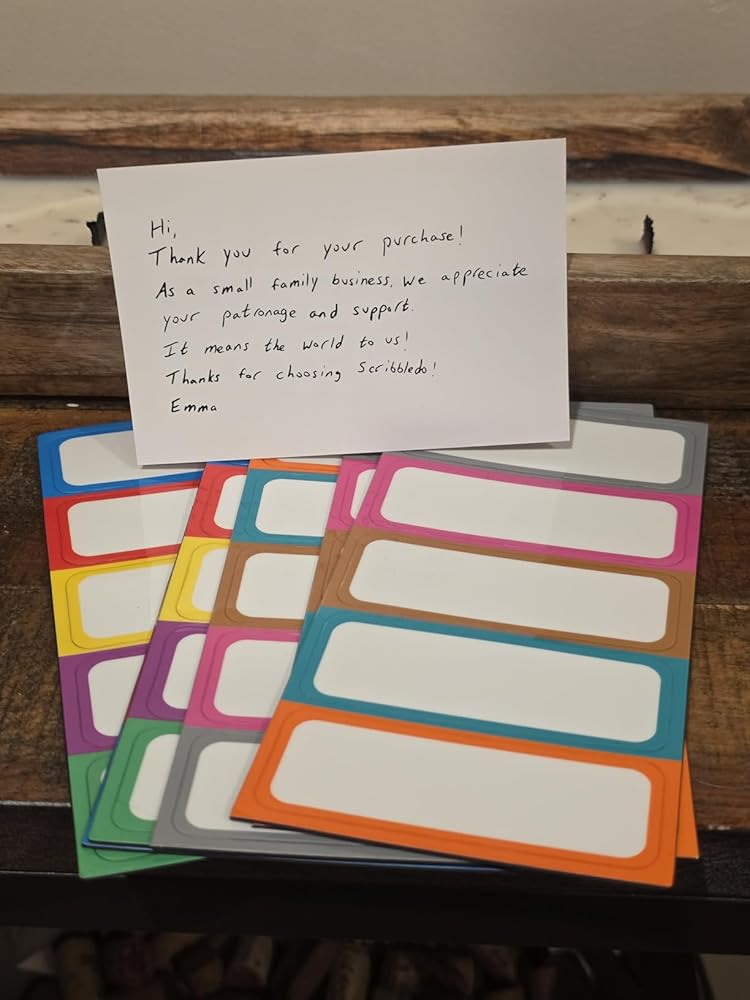 Hi,
Thank you for your purchase!
As a small family business, we appreciate
your patronage and support.
It means the world to us!
Thanks for choosing Scribbledo!
Emma